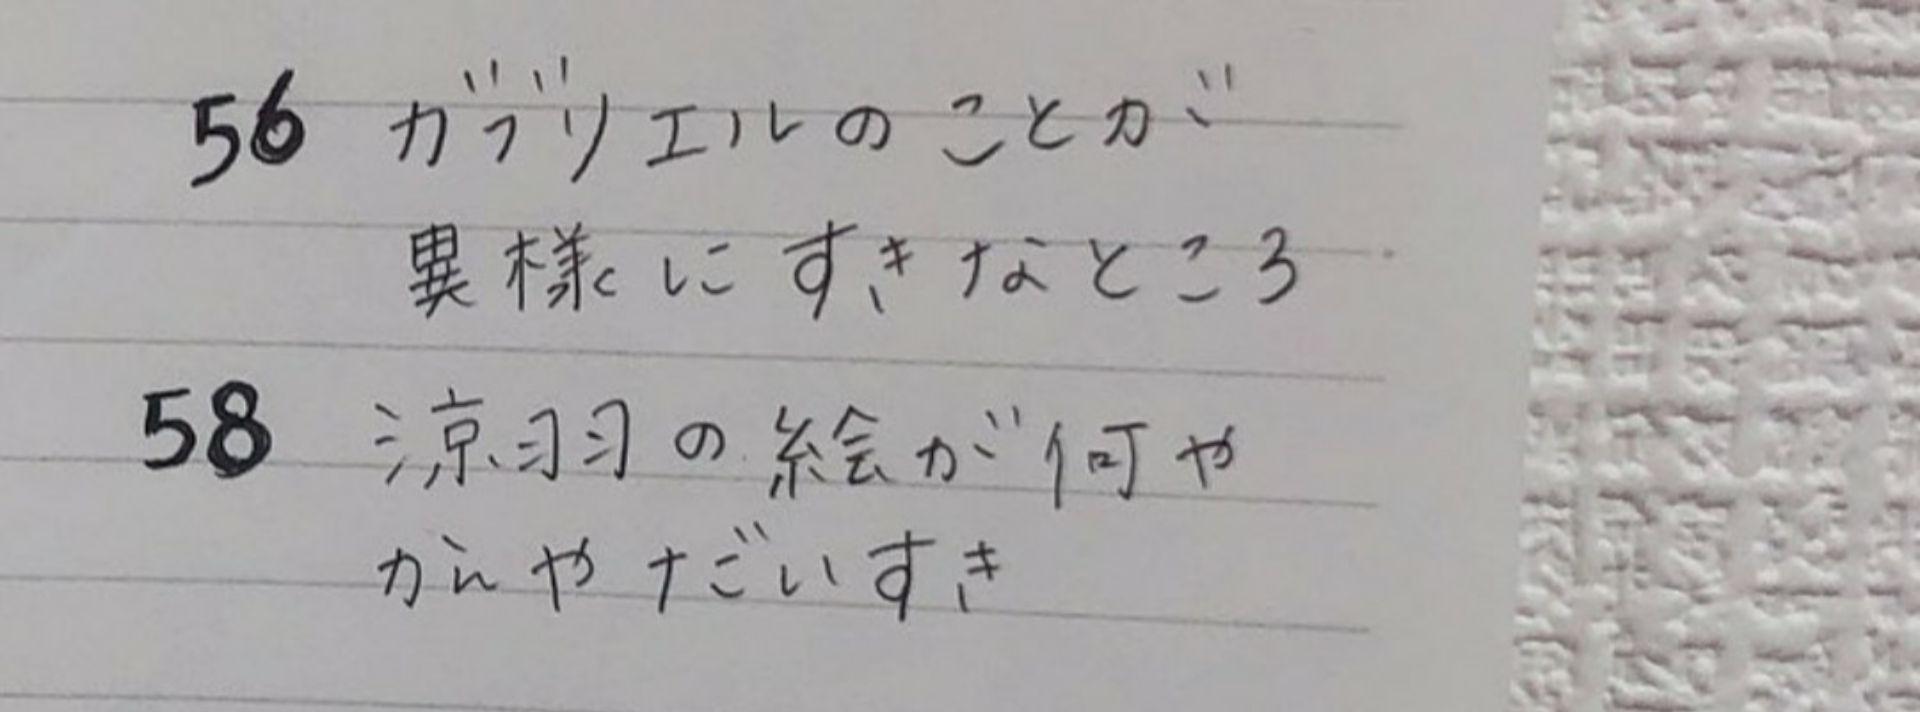 56 ガブリエルのことが
異様にすきなところ
58 涼羽の絵が何や
かんやだいすき